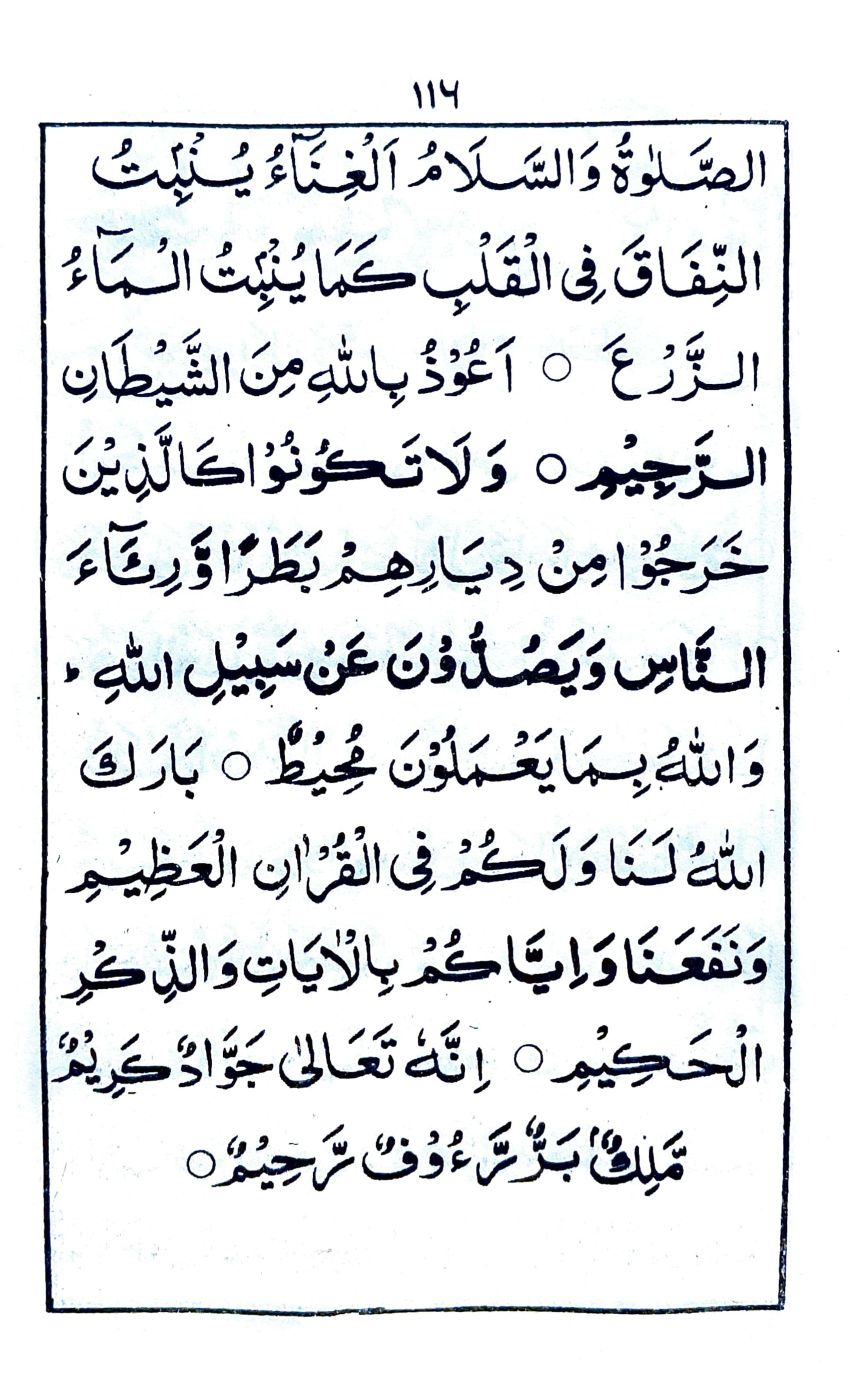 ١١٦
الصَّلٰوةُ وَالسَّلَامُ اَلْغِنَآءُ يُنْبِتُ
النِّفَاقَ فِى الْقَلْبِ كَمَا يُنْبِتُ الْمَآءُ
الزَّرْعَ ○ اَعُوْذُ بِاللهِ مِنَ الشَّيْطَانِ
الرَّجِيْمِ ○ وَلَا تَكُوْنُوْا كَالَّذِيْنَ
خَرَجُوْا مِنْ دِيَارِهِمْ بَطَرًا وَّرِئَآءَ
النَّاسِ وَيَصُدُّوْنَ عَنْ سَبِيْلِ اللهِ ؕ
وَاللهُ بِمَا يَعْمَلُوْنَ مُحِيْطٌ ○ بَارَكَ
اللهُ لَنَا وَلَكُمْ فِى الْقُرْاٰنِ الْعَظِيْمِ
وَنَفَعَنَا وَاِيَّاكُمْ بِالْاٰيَاتِ وَالذِّكْرِ
الْحَكِيْمِ ○ اِنَّهٗ تَعَالٰى جَوَّادٌ كَرِيْمٌ
مَّلِكٌ بَرٌّ رَّءُوْفٌ رَّحِيْمٌ ○